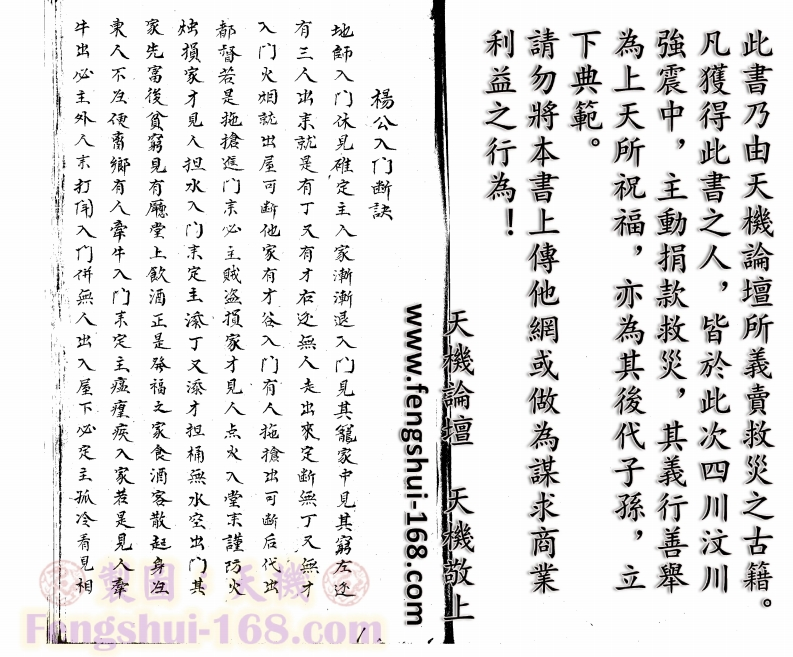 此書乃由天機論壇所義賣救災之古籍。
凡獲得此書之人，皆於此次四川汶川
強震中，主動捐款救災，其義行善舉
為上天所祝福，亦為其後代子孫，立
下典範。
請勿將本書上傳他網或做為謀求商業
利益之行為！
天機論壇 天機敬上
www.fengshui-168.com
楊公入门断訣
地師入门休見碓定主入家漸漸退入门見其籠家中見其窮左边
有三人出来就是有丁又有才右边無人走出來定断無丁又無才
入门火烟就出屋可断他家有才谷入门有人拖搶出可断后代出
都督若是拖搶進门来必主賊盗損家才見人点火入堂来謹防火
烛損家才見人担水入门来定主添丁又添才担桶無水空出门其
家先富後貧窮見有廳堂上飲酒正是發福之家食酒客散起身
東人不在便离鄉有人牽牛入门来定主瘟瘟疾入家若是見人牽
牛出必主外人来打入门併無人出入屋下必定主孤冷看見相
天機·製圖
Fengshui-168.com